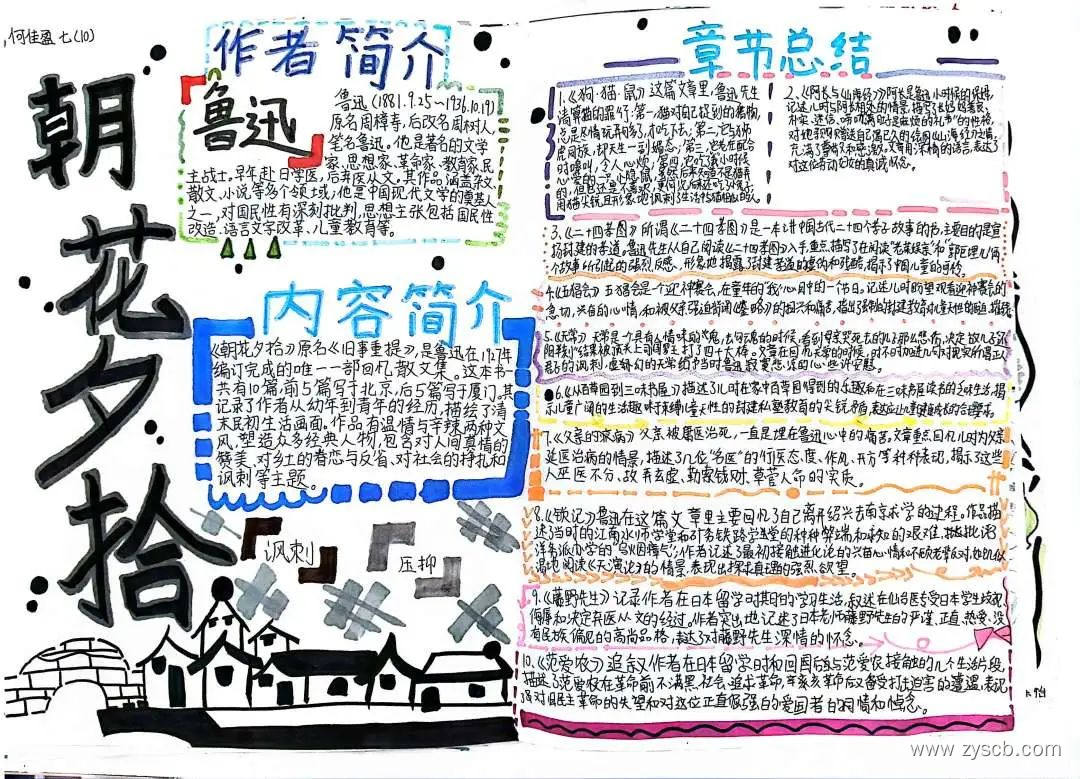 何佳盈 七(10)
朝花夕拾
作者简介
鲁迅
鲁迅(1881.9.25~1936.10.19)
原名周樟寿，后改名周树人，
笔名鲁迅。他是著名的文学
家、思想家、革命家、教育家、民
主战士。早年赴日学医，后弃医从文。其作品涵盖杂文、
散文、小说等多个领域，他是中国现代文学的奠基人
之一，对国民性有深刻批判，思想主张包括国民性
改造、语言文字改革、儿童教育等。
内容简介
《朝花夕拾》原名《旧事重提》，是鲁迅在1927年
编订完成的唯一一部回忆散文集。这本书
共有10篇，前5篇写于北京，后5篇写于厦门。其
记录了作者从幼年到青年的经历，描绘了清
末民初生活画面。作品有温情与辛辣两种文
风，塑造众多经典人物，包含对人间真情的
赞美、对乡土的眷恋与反省、对社会的挣扎和
讽刺等主题。
讽刺
压抑
章节总结
1.《狗·猫·鼠》这篇文章里，鲁迅先生
2.《阿长与山海经》阿长是鲁迅小时候的保姆，
记述儿时与阿长相处的情景，描写了长妈妈善良、
朴实、迷信、唠叨、满肚子是麻烦的礼节"的性格，
3.《二十四孝图》所谓《二十四孝图》是一本讲中国古代二十四个孝子故事的书，主要目的是宣
扬封建的孝道。鲁迅先生从自己阅读《二十四孝图》入手，重点描写了在阅读"老莱娱亲"和"郭巨埋儿"两
个故事所引起的强烈反感，形象地揭露了封建孝道的虚伪和残酷，揭示了中国儿童的可怜。
4.《五猖会》五猖会是个迎神赛会，在童年的"我"心目中的一个节日。记述儿时盼望观看迎神赛会的
急切、兴奋的心情，和被父亲强迫背诵《鉴略》的扫兴和痛苦，
5.《无常》无常是个具有人情味的鬼，去勾魂的时候，看到母亲哭死去的儿子那么悲伤，决定放儿子"还
阳半刻"结果被顶头上司阎罗王打了四十大棒。文章在回忆无常的时候，时不时加进几句对现实所谓正人
君子的讽刺，虚幻的无常给予当时鲁迅寂寞悲凉的心些许安慰。
6.《从百草园到三味书屋》描述了儿时在家中百草园得到的乐趣和在三味书屋读书的乏味生活，揭
示儿童广阔的生活趣味与束缚儿童天性的封建私塾教育的尖锐矛盾，表达应让儿童健康成长的合理要求。
7.《父亲的病》父亲被庸医治死，一直是埋在鲁迅心中的痛苦，文章重点回忆儿时为父亲
延医治病的情景，描述了几位"名医"的行医态度、作风、开方等种种表现，揭示了这些
人巫医不分、故弄玄虚、勒索钱财、草菅人命的实质。
8.《琐记》鲁迅在这篇文章里主要回忆了自己离开绍兴去南京求学的过程。作品描
述了当时的江南水师学堂和矿务铁路学堂的种种弊端和求知的艰难，批评了
洋务派办学的"乌烟瘴气"，作者记述了最初接触进化论的兴奋心情和不顾老辈反对，如饥似
渴地阅读《天演论》的情景，表现出探求真理的强烈欲望。
9.《藤野先生》记录作者在日本留学时期的学习生活，叙述在仙台医专受日本学生歧视、
侮辱和决定弃医从文的经过。作者突出地记述了日本老师藤野先生的严谨、正直、热爱、没
有民族偏见的高尚品格，表达了对藤野先生深情的怀念。
10.《范爱农》追叙作者在日本留学时和回国后与范爱农接触的几个生活片段，
描述了范爱农在革命前不满黑社会、追求革命，辛亥革命后又备受打击迫害的遭遇，表现
了对旧民主革命的失望和对这位正直倔强的爱国者的同情和悼念。
www.zyscb.com